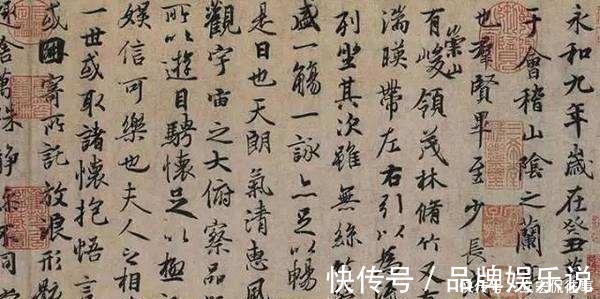 永和九年歲在癸丑
于會稽山陰之蘭
也群賢畢至少長
有崇山峻領茂林脩竹又
湍暎帶左右引以為
列坐其次雖無絲
盛一觴一詠亦足以暢
是日也天朗氣清惠風
觀宇宙之大俯察品
所以遊目騁懷足以極
娛信可樂也夫人之相
一世或取諸懷抱悟言
或因寄所託放浪形骸
舍萬殊静躁不同
快传号／品牌娱乐说